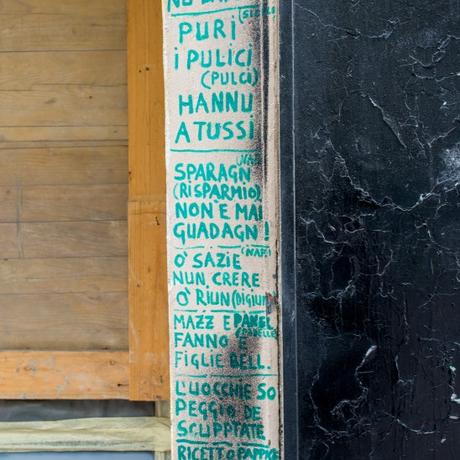 PURI
I PULICI
(PULCI)
HANNU
A TUSSI
SPARAGN
(RISPARMIO)
NON È MAI
GUADAGN!
(NAP.)
O' SAZIE
NUN CRERE
O' RIUN (DIGIUN
MAZZ E PANEL
FANNO E
FIGLIE BELL.
L'UOCCHIE SO
PEGGIO DE
SCUPPTATE
RICETTO PAPPICE